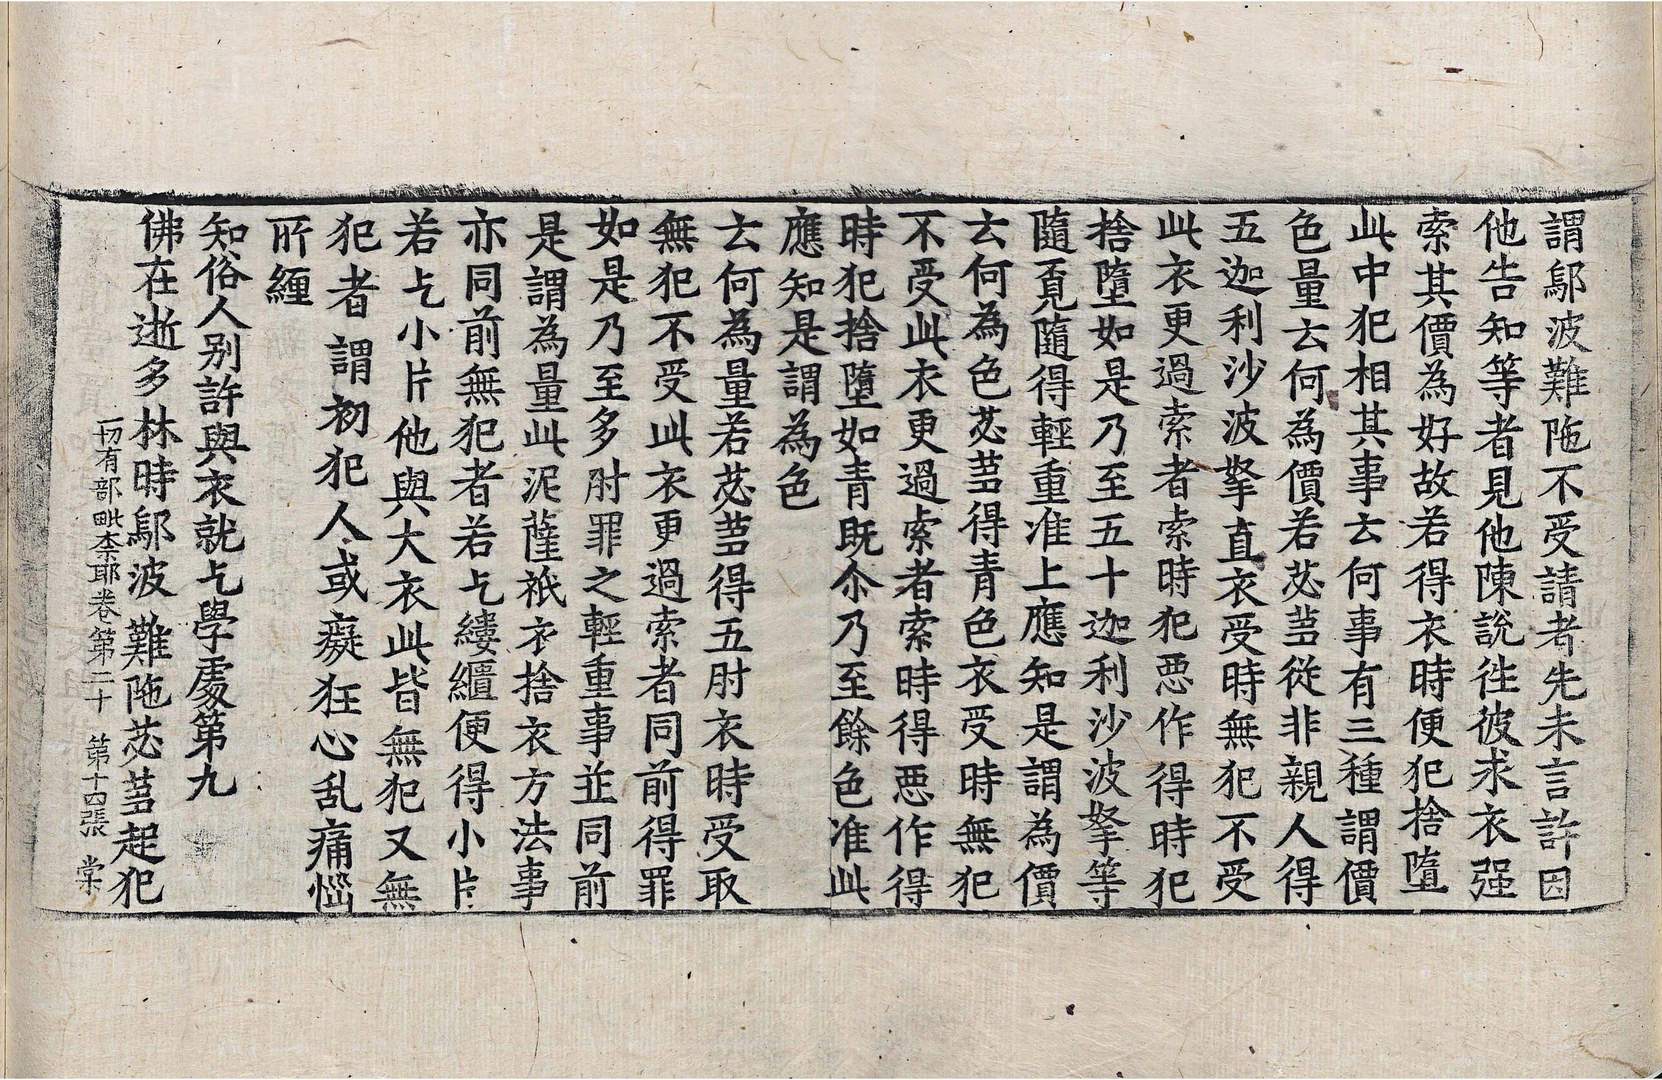 謂鄔波難陁不受請者先未言許因
他告知等者見他陳說往彼求衣强
索其價為好故若得衣時便犯捨墮
此中犯相其事云何事有三種謂價
色量云何為價若苾蒭從非親人得
五迦利沙波拏直衣受時無犯不受
此衣更過索者索時犯惡作得時犯
捨墮如是乃至五十迦利沙波拏等
隨覔隨得輕重准上應知是謂為價
云何為色苾蒭得青色衣受時無犯
不受此衣更過索者索時得惡作得
時犯捨墮如青既尒乃至餘色准此
應知是謂為色
云何為量若苾蒭得五肘衣時受取
無犯不受此衣更過索者同前得罪
如是乃至多肘罪之輕重事並同前
是謂為量此泥薩祇衣捨衣方法事
亦同前無犯者若乞縷繢便得小片
若乞小片他與大衣此皆無犯又無
犯者謂初犯人或癡狂心乱痛惱
所纏
知俗人別許與衣就乞學處第九
佛在逝多林時鄔波難陁苾蒭起犯
一切有部毗柰耶卷第二十　第十四張　棠